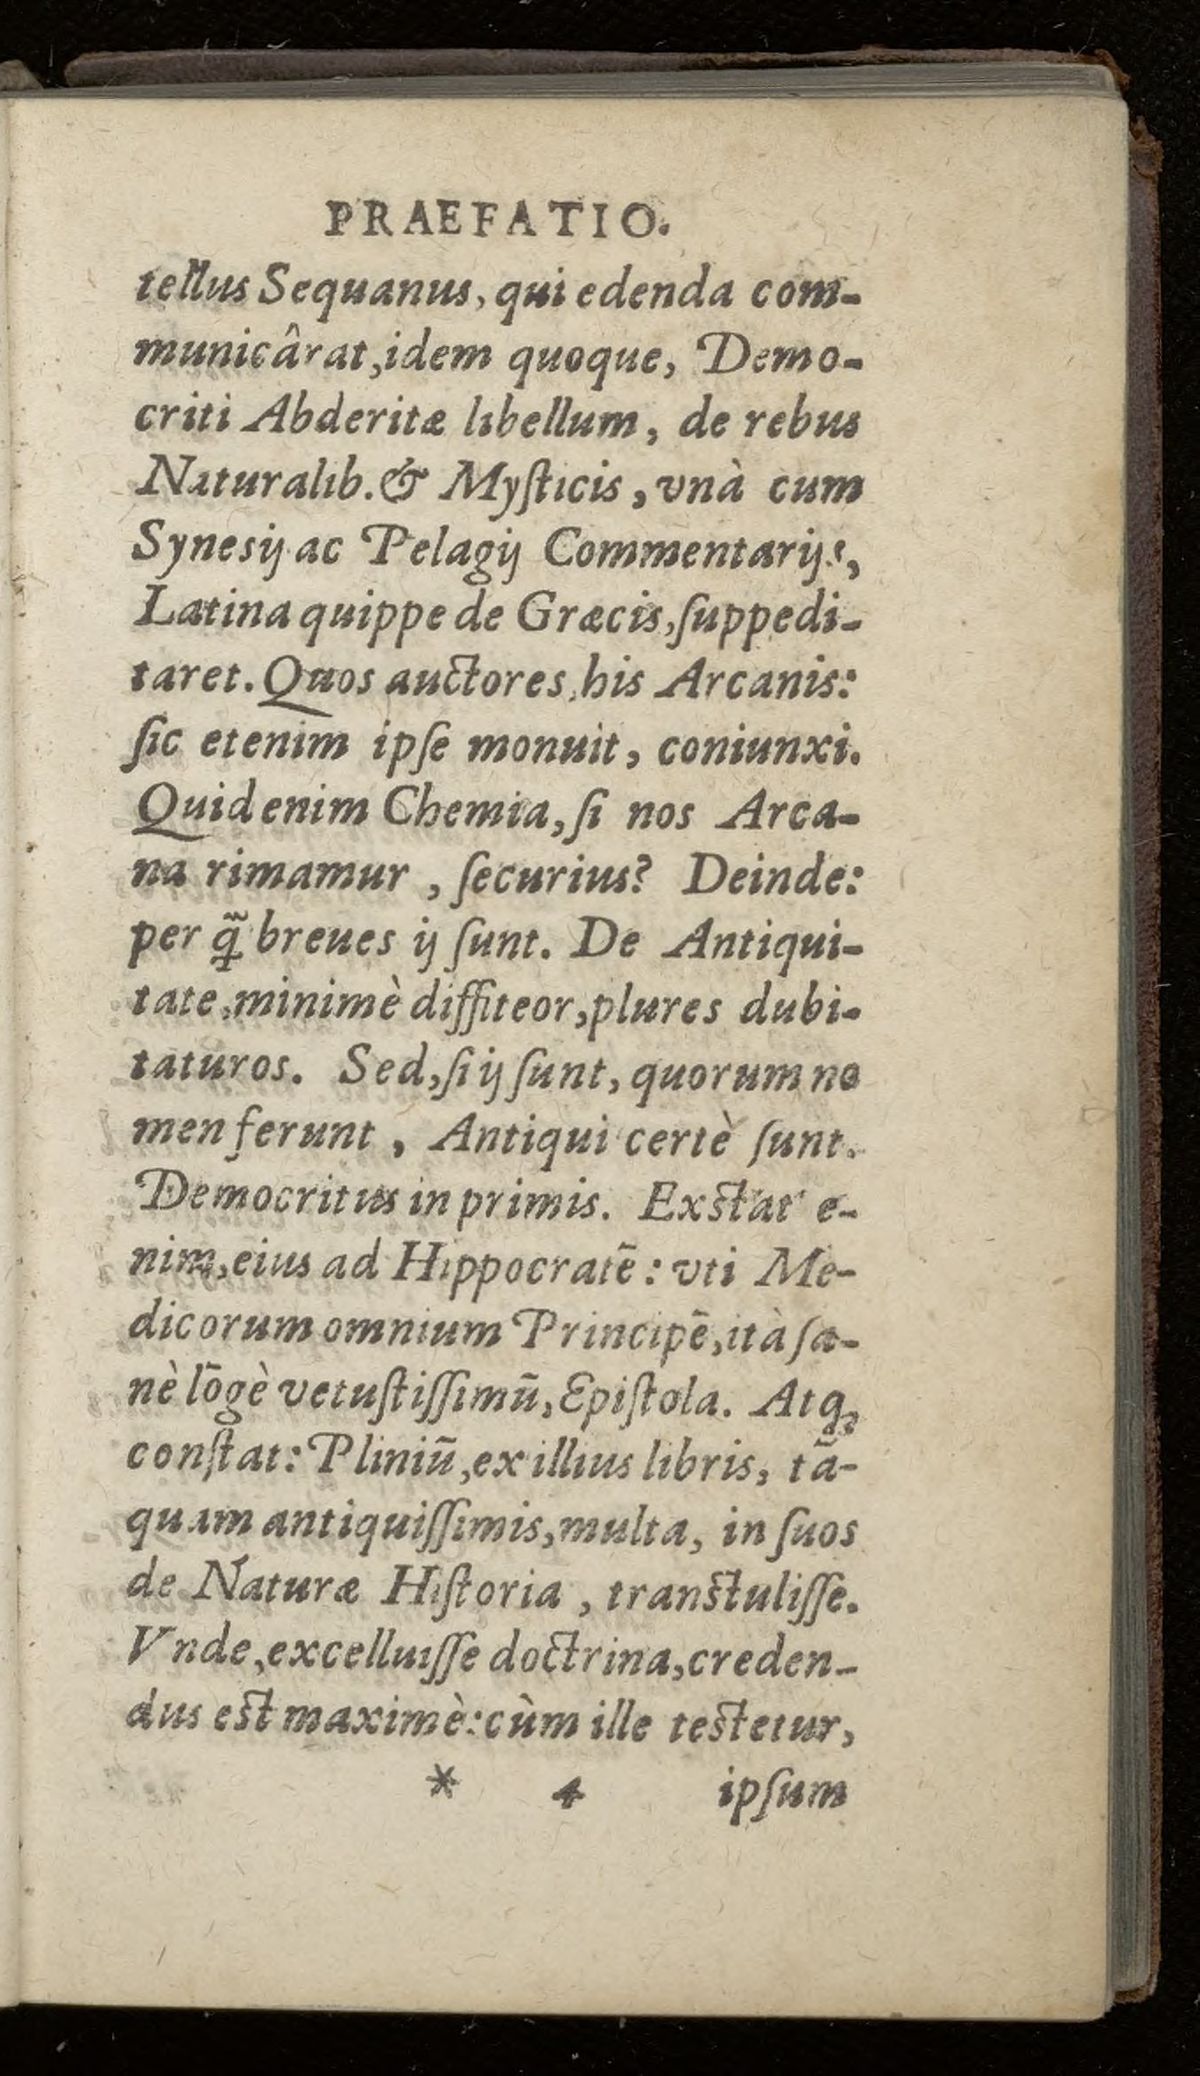 PRAEFATIO.
tellus Sequanus, qui edenda com-
municârat, idem quoque, Demo-
criti Abderitæ libellum, de rebus
Naturalib. & Myſticis, vnà cum
Synesij ac Pelagij Commentarijs,
Latina quippe de Græcis, ſuppedi-
taret. Quos auctores, his Arcanis:
ſic etenim ipſe monuit, coniunxi.
Quid enim Chemia, ſi nos Arca-
na rimamur, ſecurius? Deinde:
per q̃ breues ij ſunt. De Antiqui-
tate, minimè diffiteor, plures dubi-
taturos. Sed, ſi ij ſunt, quorum no
men ferunt, Antiqui certè ſunt.
Democritus in primis. Exstat e-
nim, eius ad Hippocratẽ: vti Me-
dicorum omnium Principẽ, ità ſa-
nè lõgè vetuſtiſſimũ, Epiſtola. Atq;
conſtat: Pliniũ, ex illius libris, tã-
quam antiquiſſimis, multa, in ſuos
de Naturæ Hiſtoria, transtuliſſe.
Vnde, excelluiſſe doctrina, creden-
dus est maximè: cùm ille testetur,
* 4 ipſum